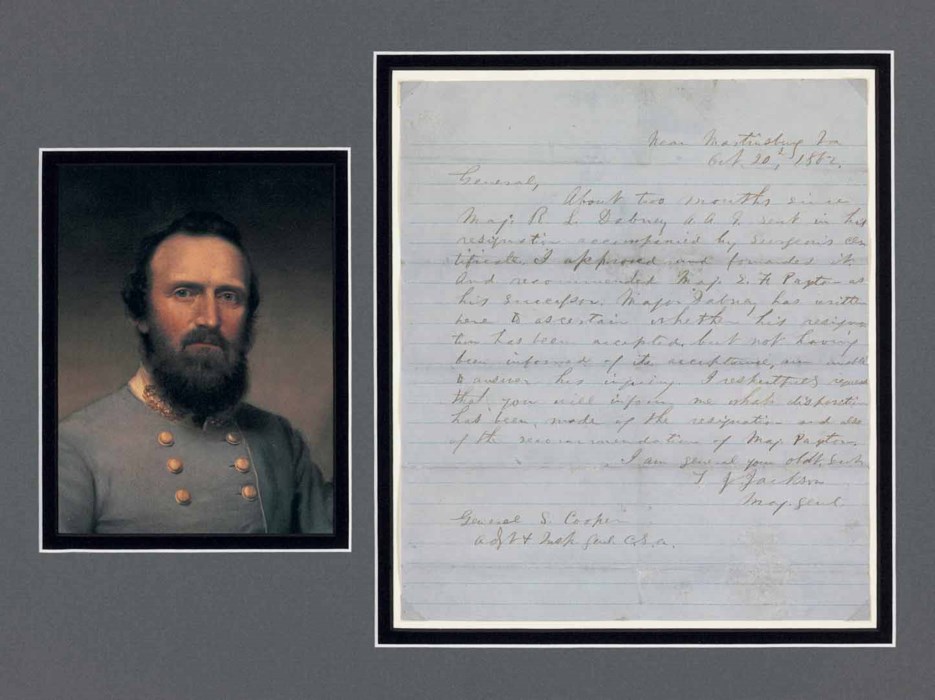 Near Martinsburg Va
Oct 20th, 1862.
General,
About two months since
Maj. R L Dabney A A G sent in his
resignation accompanied by surgeon's cer
tificate. I approved and forwarded it.
And recommended Maj. E. F. Paxton as
his successor. Major Dabney has written
here to ascertain whether his resigna
tion has been accepted, but not having
been informed of its acceptance, am unable
to answer his inquiry. I respectfully request
that you will inform me what disposition
has been made of the resignation and also
of the recommendation of Maj Paxton.
I am General your obdt. Servt.
T. J. Jackson
Maj. Genl.
General S. Cooper
Adjt & Insp Genl C.S.A.